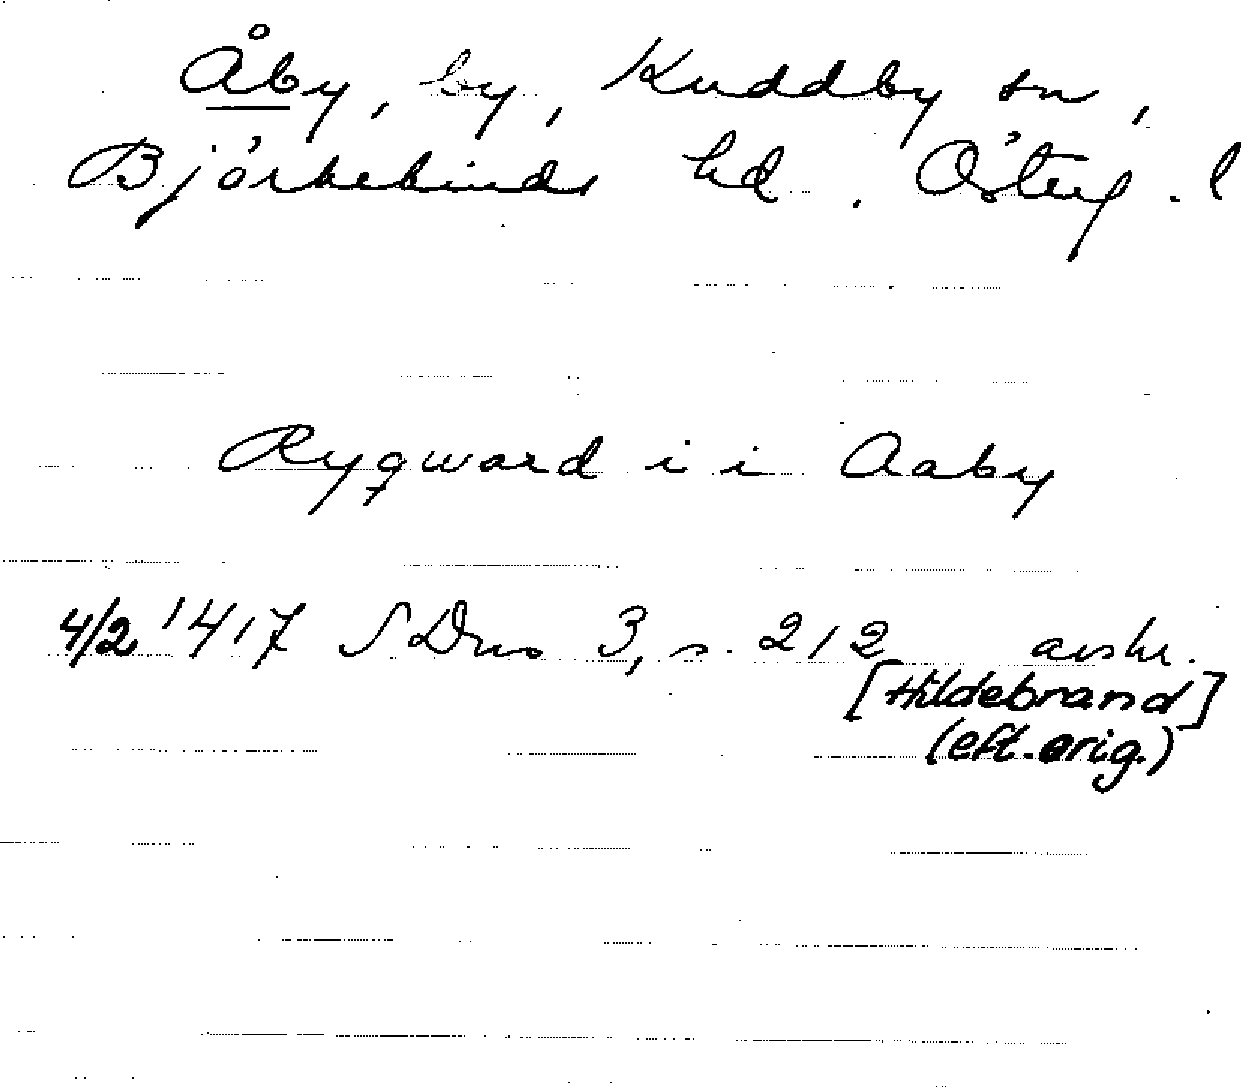 Åby, by, Kuddby sn,
Björkekinds hd. Österg. l
Rygward i i Aaby
4/2 1417 SDns 3, s. 212 avskr.
[Hildebrand]
(eft. orig.)